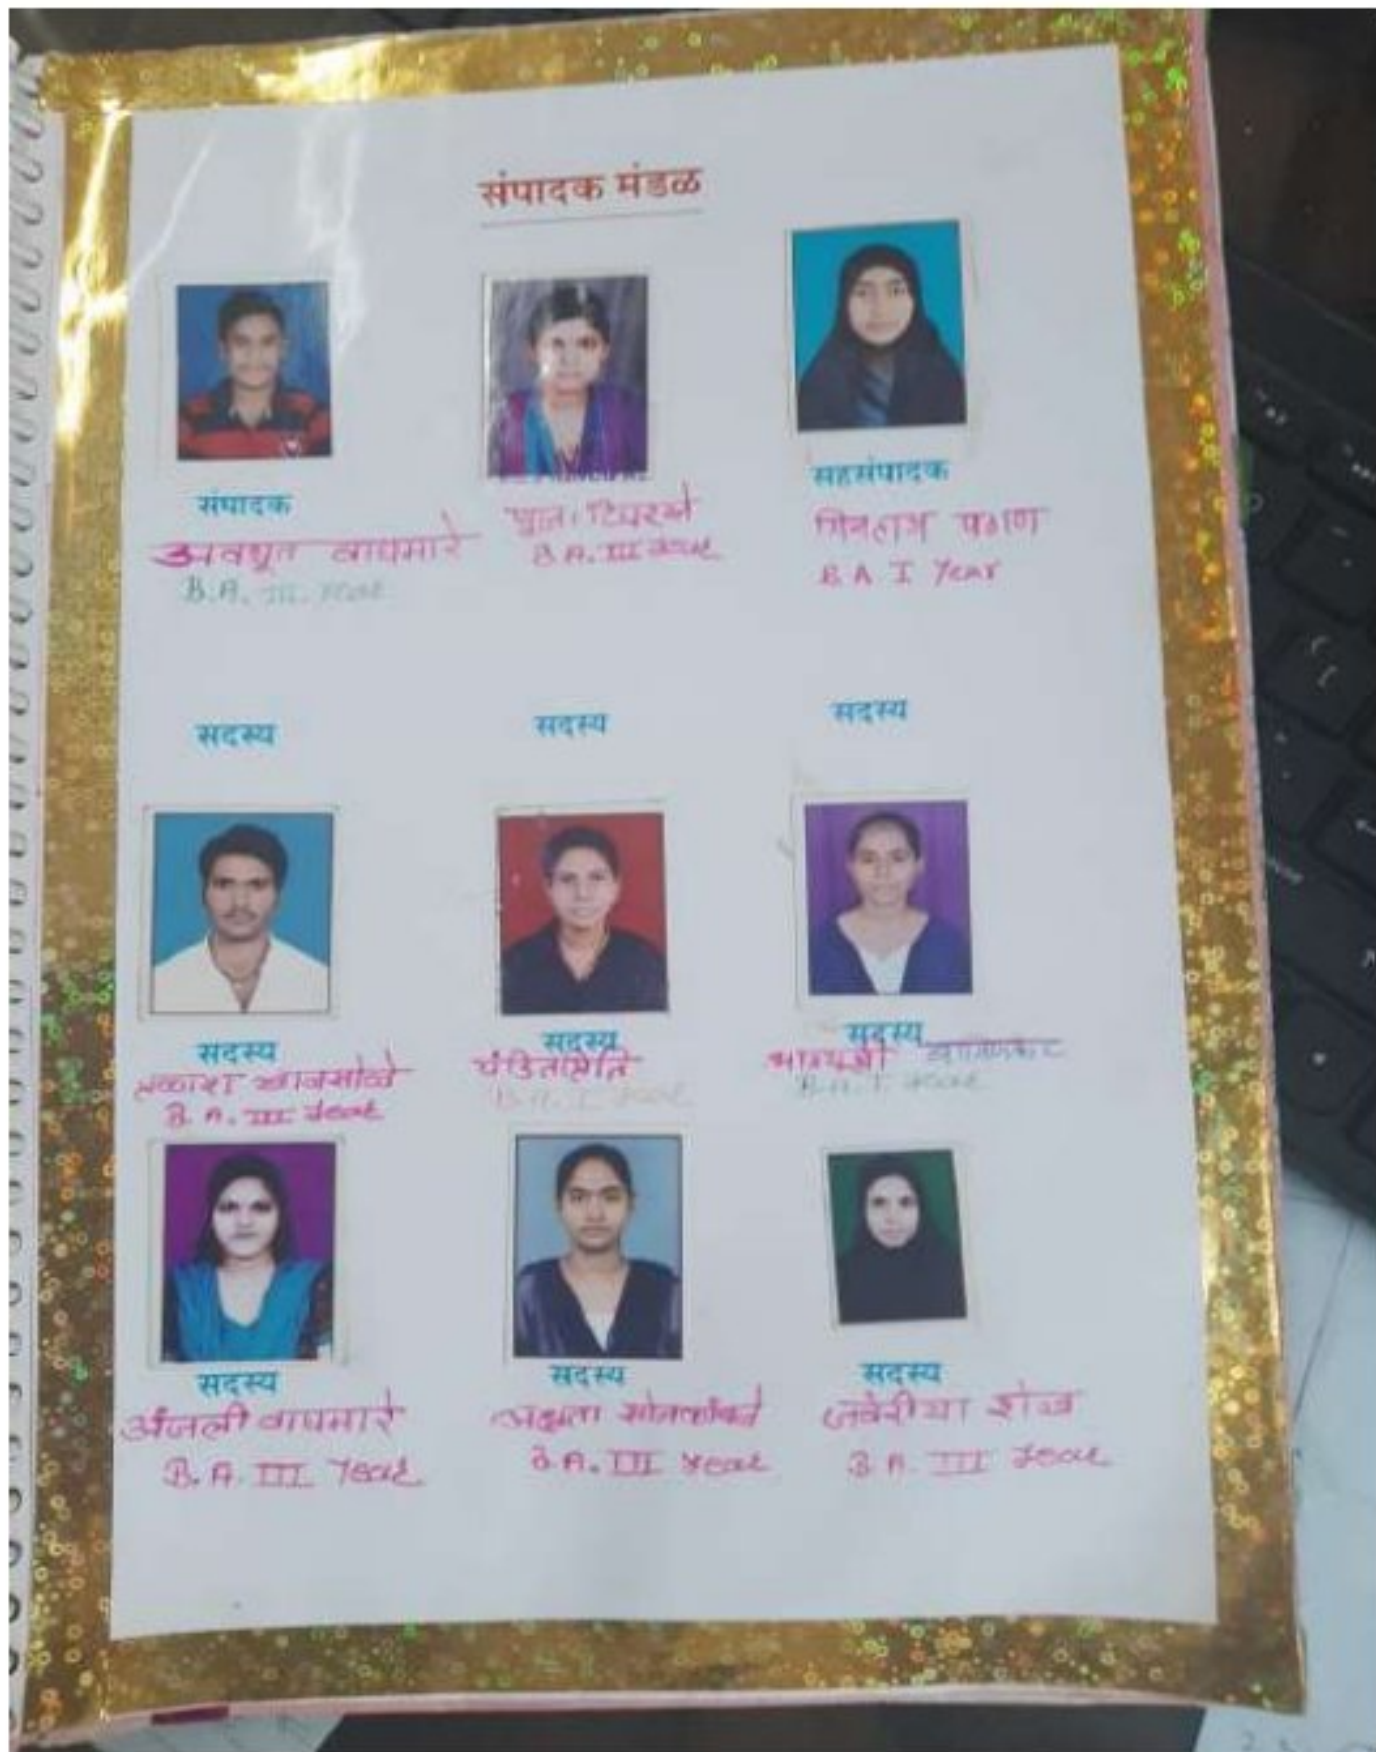 संपादक मंडळ
संपादक
अवधूत वाघमारे
B.A. III Year
B.A. III Year
सहसंपादक
पठाण
B A I Year
सदस्य
सदस्य
सदस्य
सदस्य
B.A. III Year
सदस्य
B.A. I Year
सदस्य
भाग्यश्री
B.A. I Year
सदस्य
अंजली वाघमारे
B.A. III Year
सदस्य
अक्षता सोनकांबळे
B.A. III Year
सदस्य
जवेरीया शेख
B.A. III Year